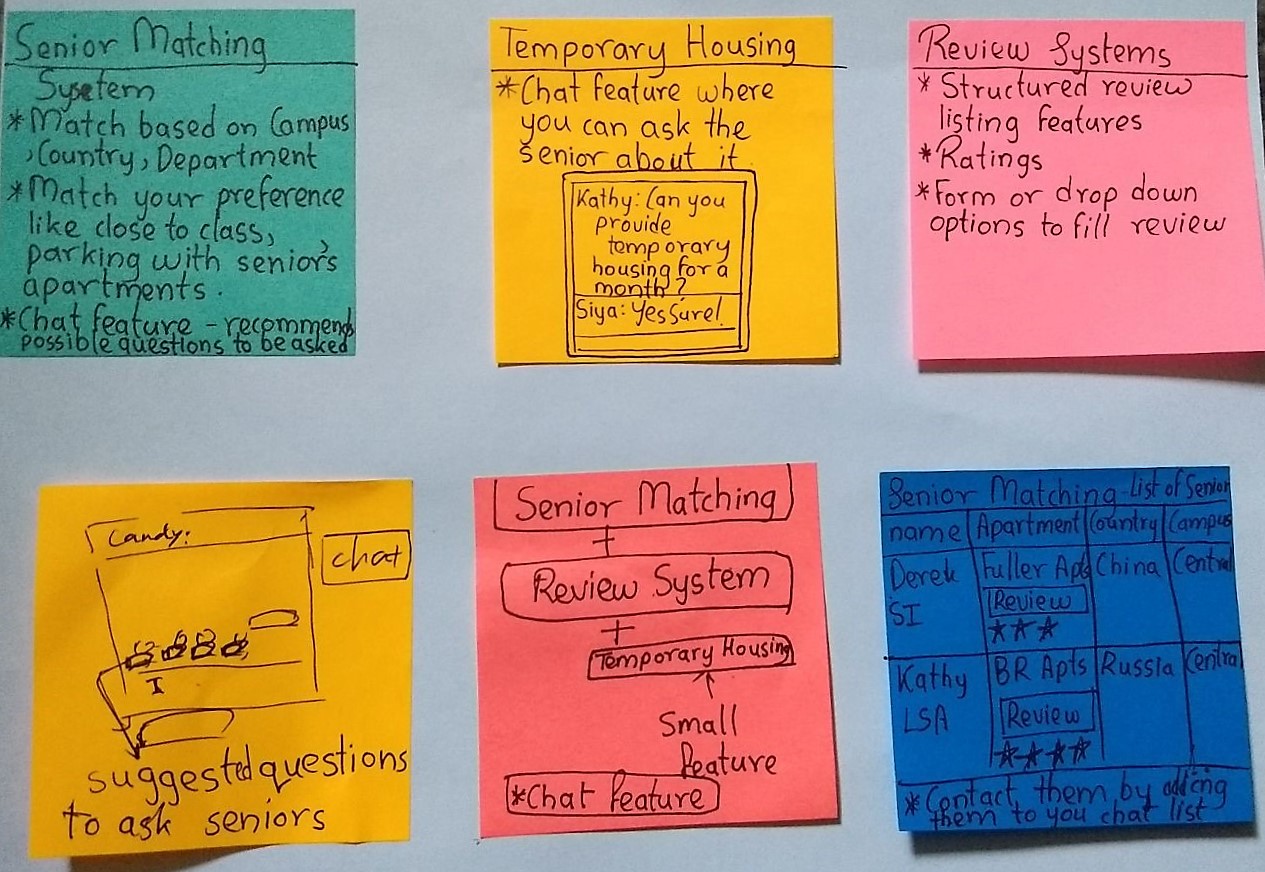 Senior Matching
System
*Match based on Campus
, Country, Department
*Match your preference
like close to class,
parking with senior's
apartments.
*Chat feature - recommends
possible questions to be asked
Temporary Housing
*Chat feature where
you can ask the
senior about it.
Kathy: Can you
provide
temporary
housing for a
month?
Siya: Yes Sure!
Review Systems
* Structured review
listing features
*Ratings
*Form or drop down
options to fill review
Candy:
chat
I
suggested questions
to ask seniors
Senior Matching
+
Review System
+
Temporary Housing
Small
feature
*Chat feature
Senior Matching - List of Senior
name Apartment Country Campus
Derek Fuller Apts China Central
SI Review
Kathy BR Apts Russia Central
LSA Review
* Contact them by adding
them to you chat list